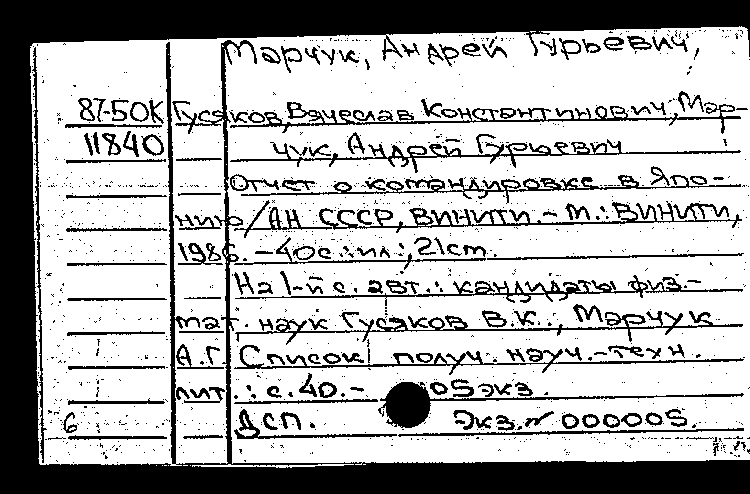 Марчук, Андрей Гурьевич,
87-50К Гусяков, Вячеслав Константинович, Мар-
11840 чук, Андрей Гурьевич
Отчет о командировке в Япо-
нию / АН СССР, ВИНИТИ. - М.: ВИНИТИ,
1986. - 40с.: ил.; 21см.
На 1-й с. авт.: кандидаты физ.-
мат. наук Гусяков В.К., Марчук
А.Г. Список получ. науч.-техн.
лит.: с.40. - 05экз.
6 Дсп. Экз. № 000005.